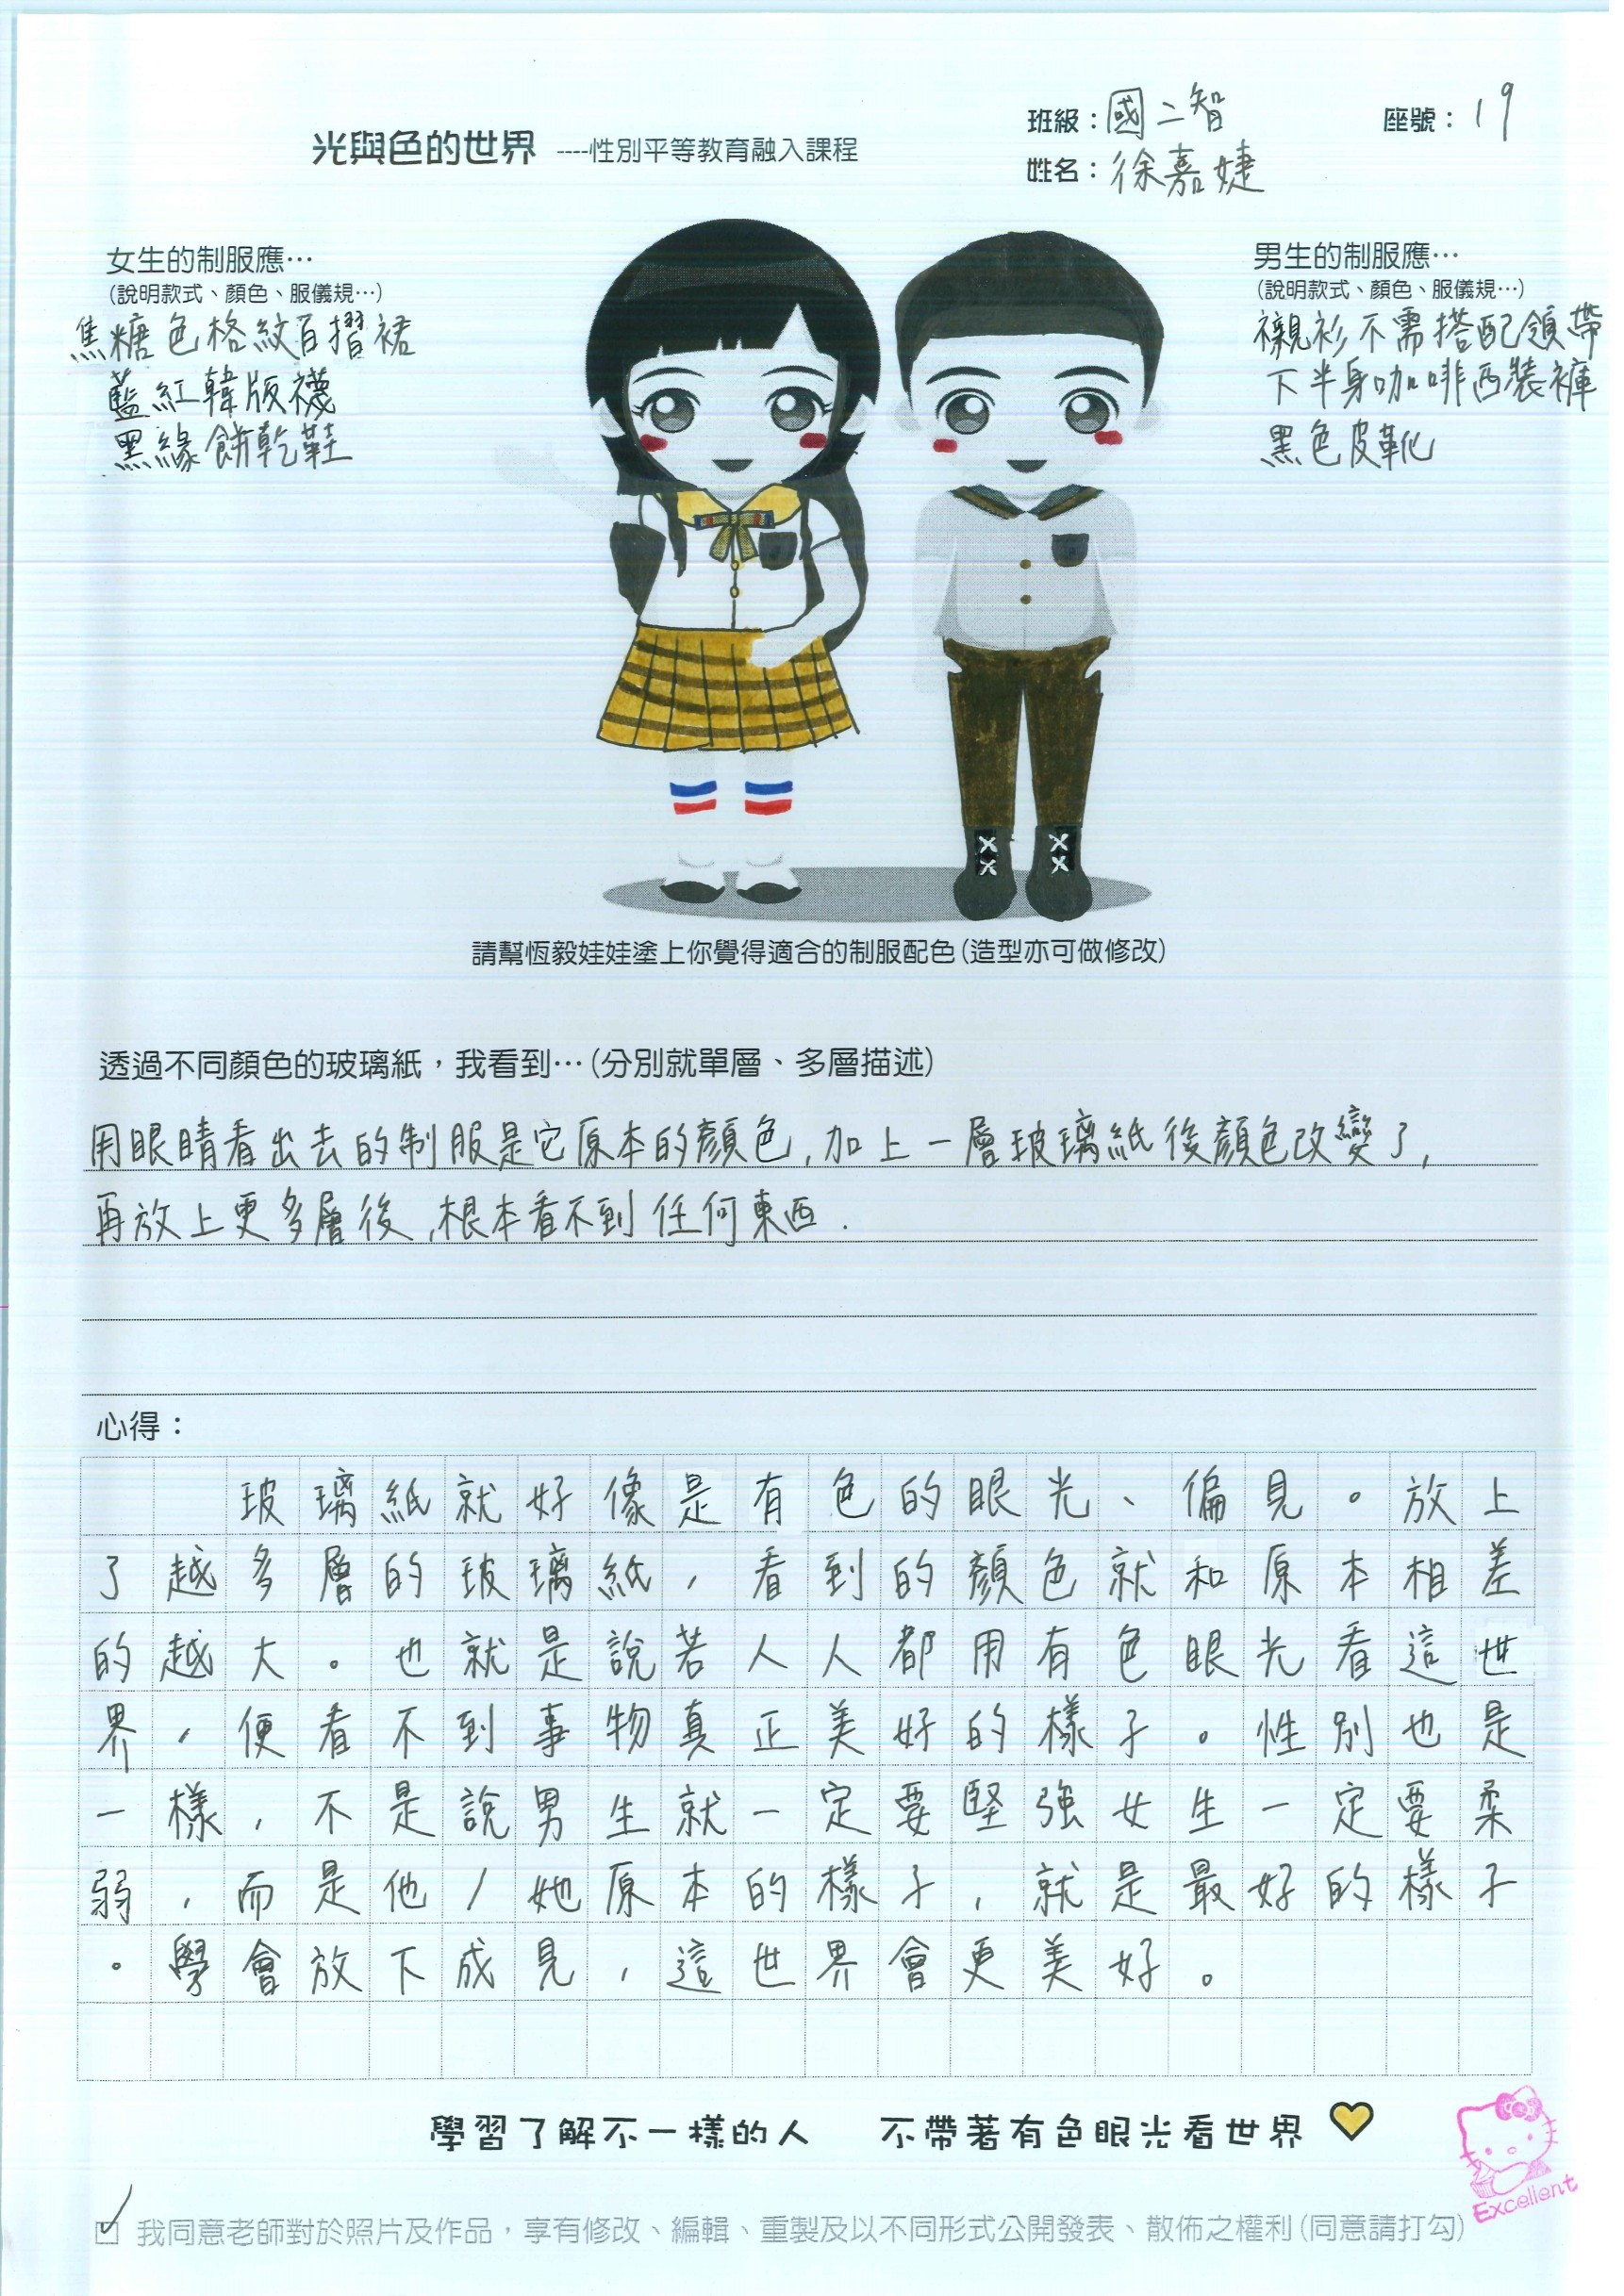 光與色的世界 ----性別平等教育融入課程
班級：國二智
座號：19
姓名：徐嘉婕
女生的制服應…
(說明款式、顏色、服儀規…)
焦糖色格紋百摺裙
藍紅韓版襪
黑緣餅乾鞋
男生的制服應…
(說明款式、顏色、服儀規…)
襯衫不需搭配領帶
下半身咖啡西裝褲
黑色皮靴
請幫恆毅娃娃塗上你覺得適合的制服配色(造型亦可做修改)
透過不同顏色的玻璃紙，我看到…(分別就單層、多層描述)
用眼睛看出去的制服是它原本的顏色,加上一層玻璃紙後顏色改變了,
再放上更多層後,根本看不到任何東西.
心得：
玻璃紙就好像是有色的眼光、偏見。放上
了越多層的玻璃紙，看到的顏色就和原本相差
的越大。也就是說若人人都用有色眼光看這世
界，便看不到事物真正美好的樣子。性別也是
一樣，不是說男生就一定要堅強女生一定要柔
弱，而是他/她原本的樣子，就是最好的樣子
。學會放下成見，這世界會更美好。
學習了解不一樣的人 不帶著有色眼光看世界
Excellent
我同意老師對於照片及作品，享有修改、編輯、重製及以不同形式公開發表、散佈之權利(同意請打勾)